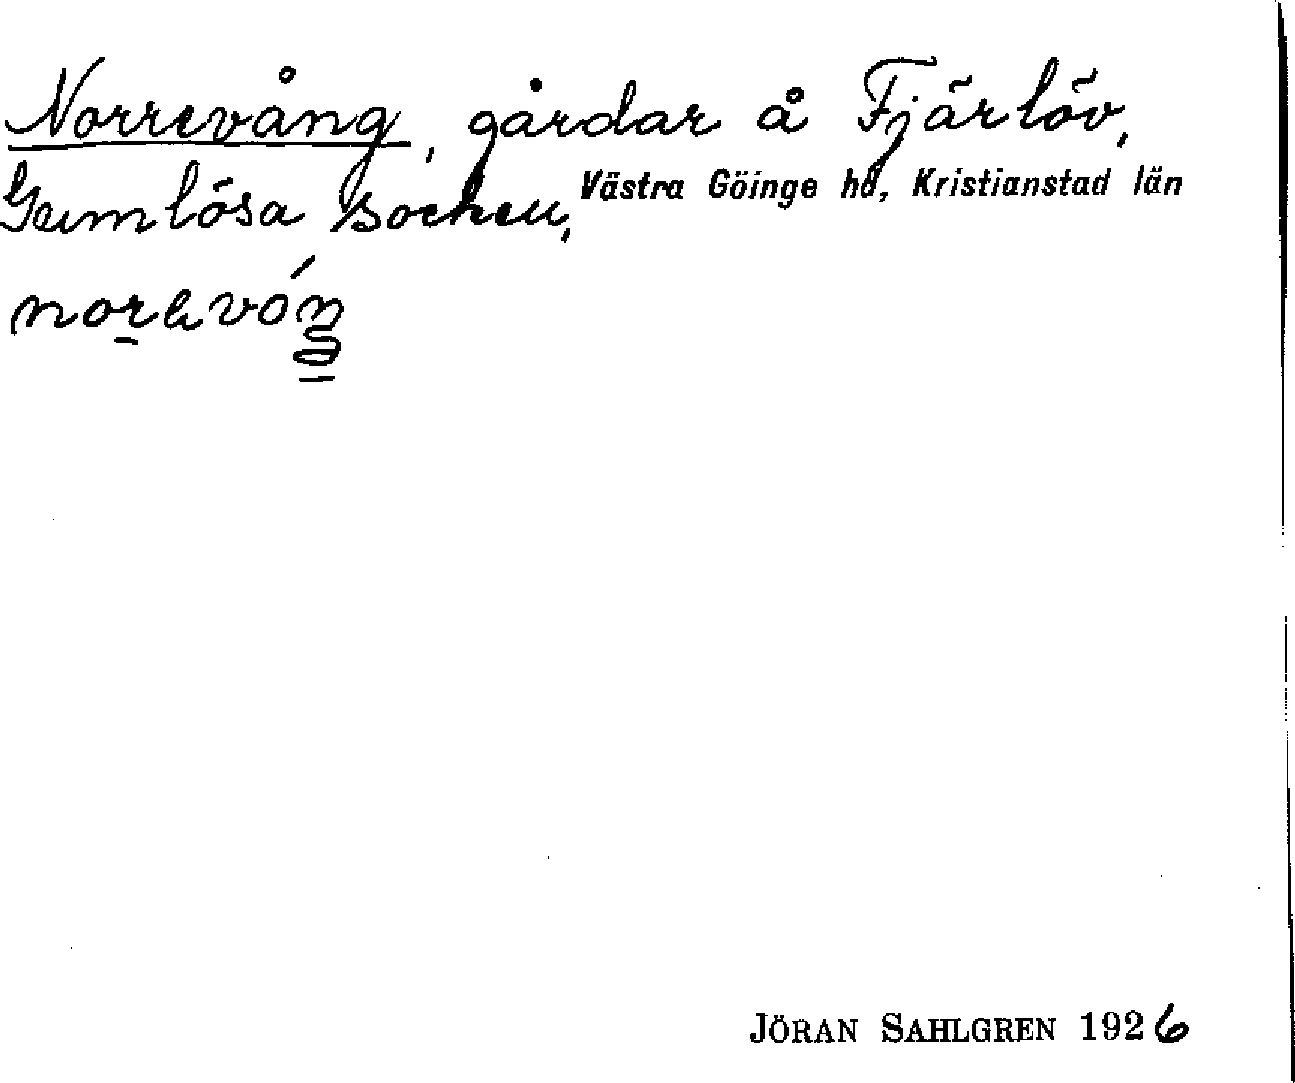 Norrevång, gårdar å Fjärlöv,
Gumlösa socken, Västra Göinge hd, Kristianstad län
JÖRAN SAHLGREN 1926